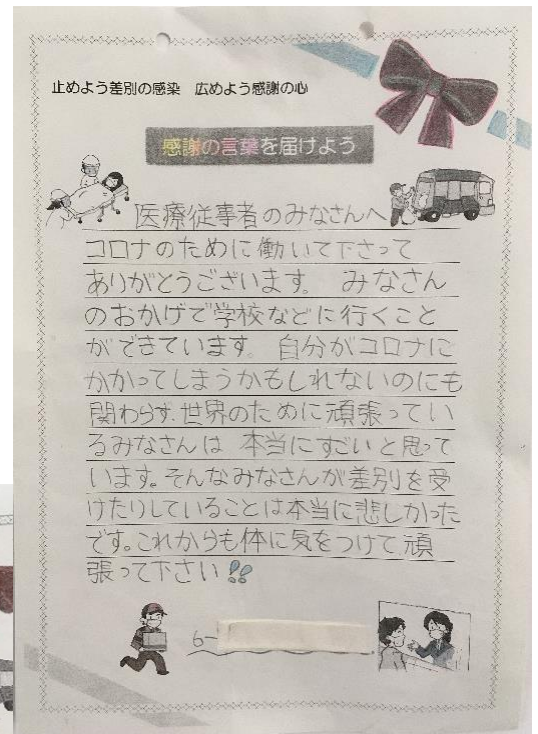 止めよう差別の感染　広めよう感謝の心
感謝の言葉を届けよう
医療従事者のみなさんへ
コロナのために働いて下さって
ありがとうございます。 みなさん
のおかげで学校などに行くこと
ができています。 自分がコロナに
かかってしまうかもしれないのにも
関わらず、世界のために頑張ってい
るみなさんは 本当にすごいと思って
います。そんなみなさんが差別を受
けたりしていることは本当に悲しかった
です。これからも体に気をつけて頑
張って下さい!!
6-